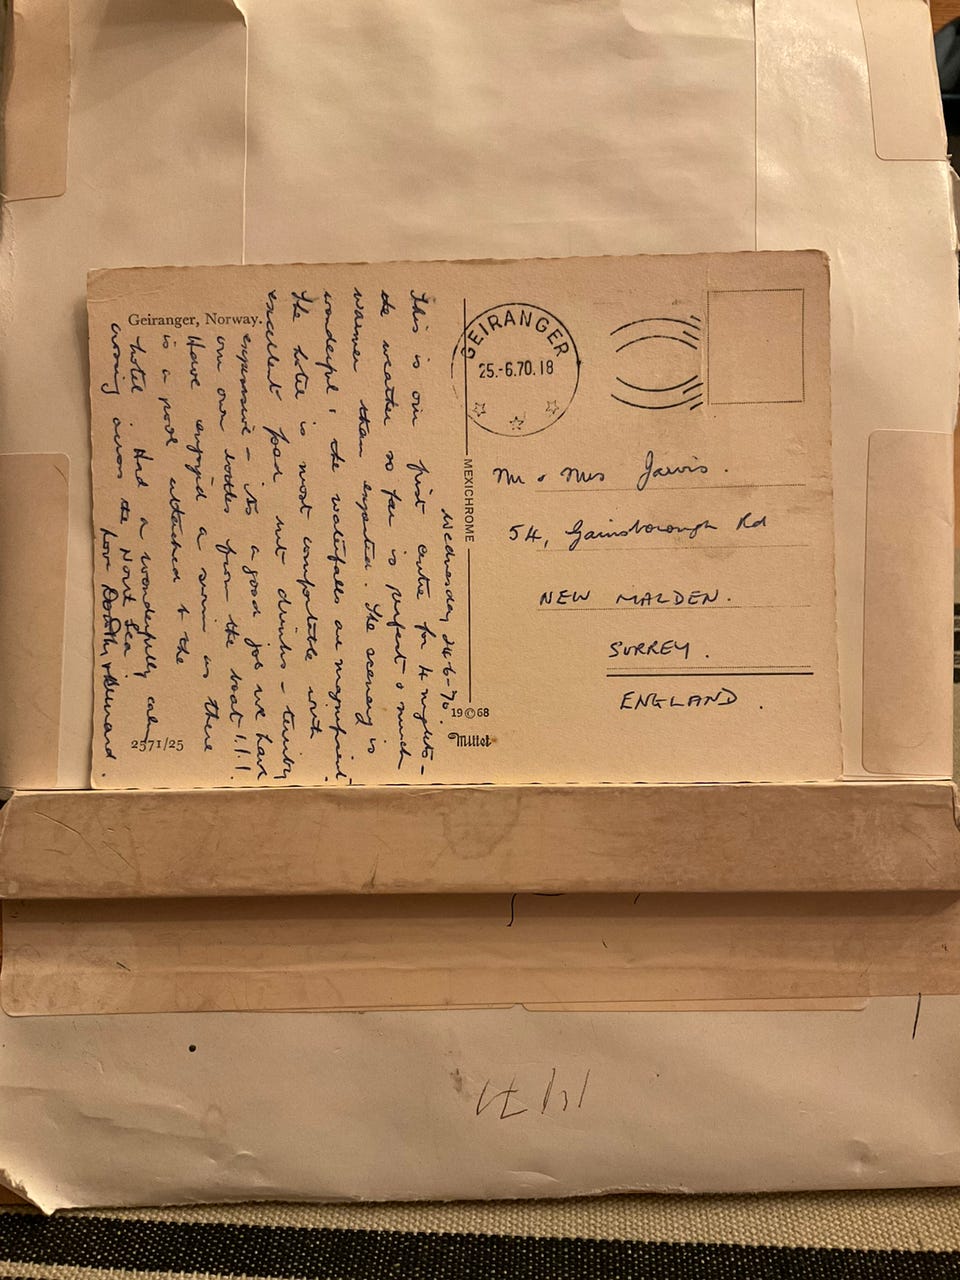 Geiranger, Norway.
Wednesday 24-6-70.
This is our first centre for 4 nights -
the weather so far is perfect & much
warmer than expected. The scenery is
wonderful, the waterfalls are magnificent.
The hotel is most comfortable with
excellent food but drinks - terribly
expensive - its a good job we have
our own bottles from the boat!!!
Have enjoyed a swim as there
is a pool attached to the
hotel. Had a wonderfully calm
crossing across the North Sea
Love Dorothy & Bernard.
2571/25
MEXICHROME
19 © 68
Mittet
GEIRANGER
25.-6.70.18
Mr & Mrs Jarvis.
54, Gainsborough Rd
NEW MALDEN.
SURREY.
ENGLAND.